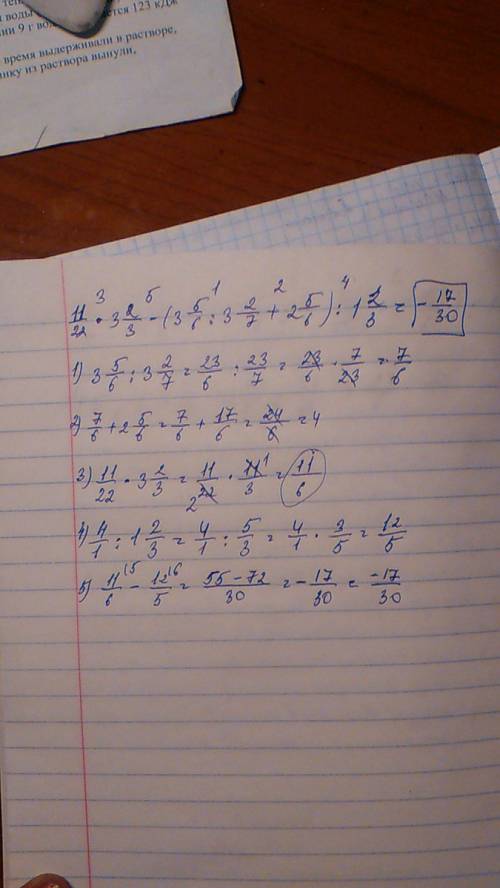 и воды
ется 123 кДж
нии 9 г вод
время выдерживали в растворе,
инку из раствора вынули,
11/22 · 3 2/3 - (3 5/6 : 3 2/7 + 2 5/6) : 1 2/3 = -17/30
3 5 1 2 4
1) 3 5/6 : 3 2/7 = 23/6 : 23/7 = 23/6 · 7/23 = 7/6
2) 7/6 + 2 5/6 = 7/6 + 17/6 = 24/6 = 4
3) 11/22 · 3 2/3 = 11/22 · 11/3 = 11/6
4) 4/1 : 1 2/3 = 4/1 : 5/3 = 4/1 · 3/5 = 12/5
5) 11/6 - 12/5 = 55-72/30 = -17/30 = -17/30